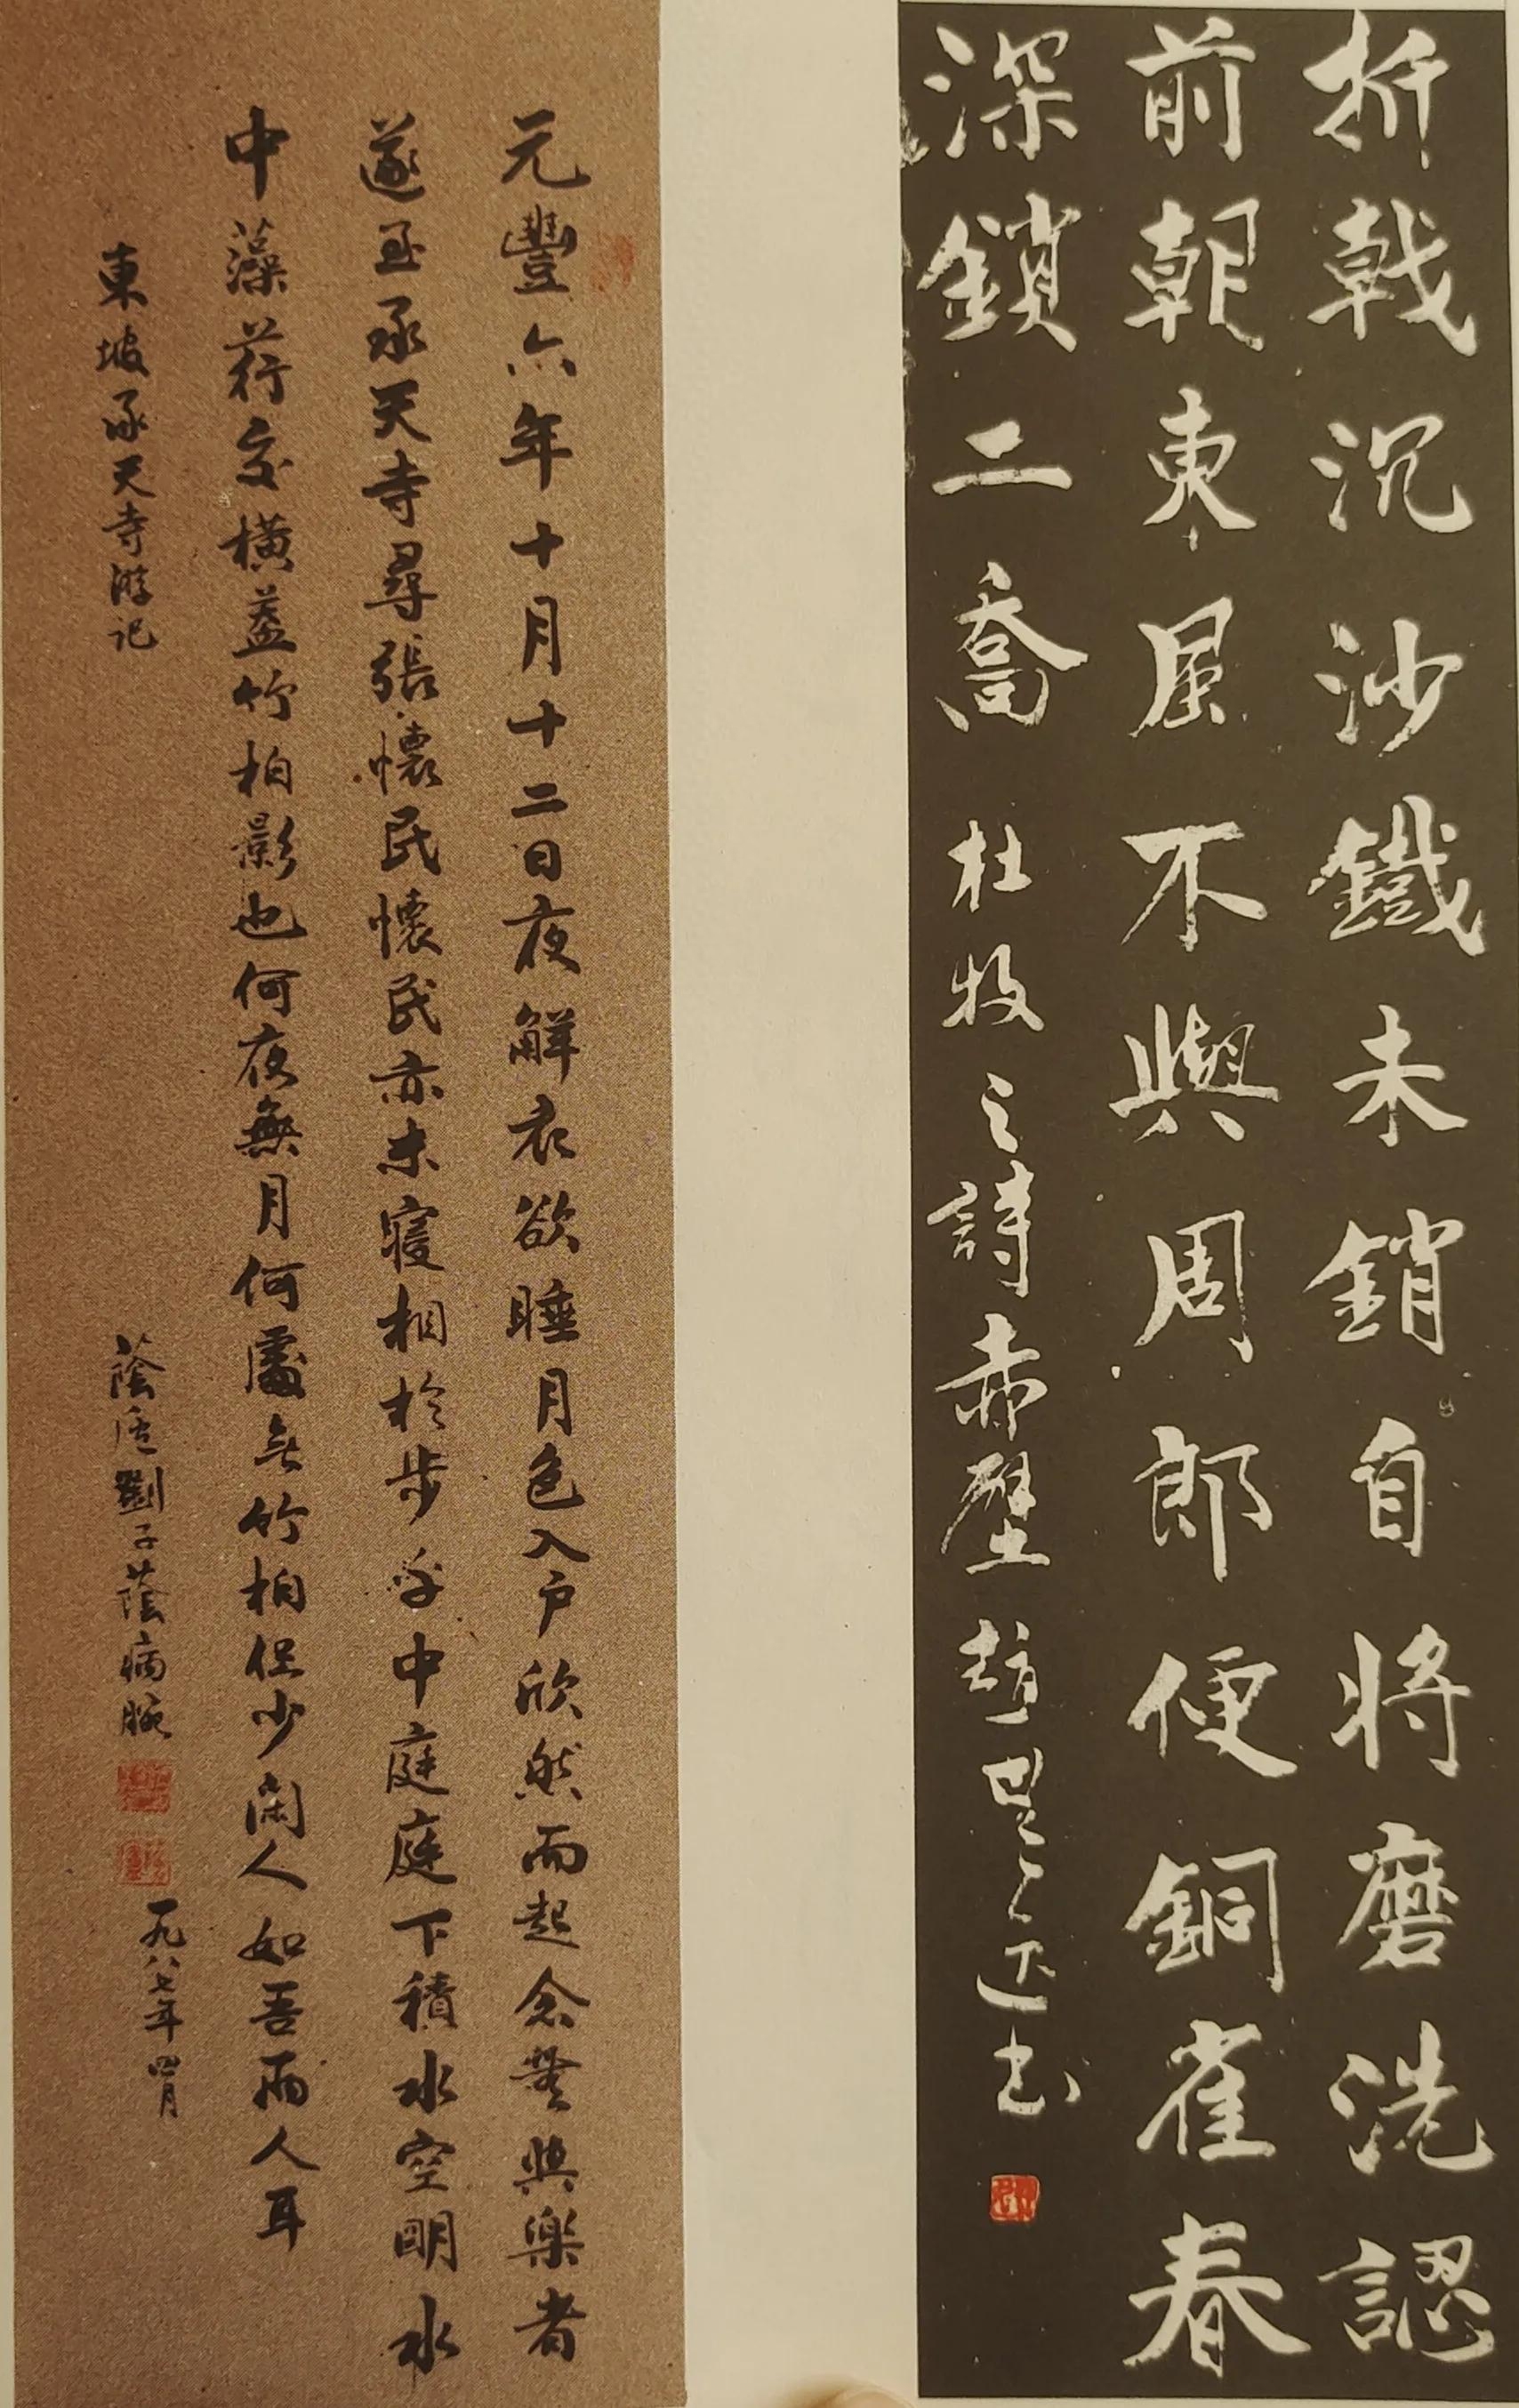 折戟沉沙鐵未銷自將磨洗認
前朝東風不與周郎便銅雀春
深鎖二喬 杜牧之詩赤壁 趙 書
元豐六年十月十二日夜解衣欲睡月色入戶欣然而起念無與樂者
遂至承天寺尋張懷民懷民亦未寢相於步乎中庭庭下積水空明水
中藻荇交橫蓋竹柏影也何夜無月何處无竹柏但少閑人如吾兩人耳
東坡承天寺游记
蔭廬劉子蔭病腕
一九八七年四月